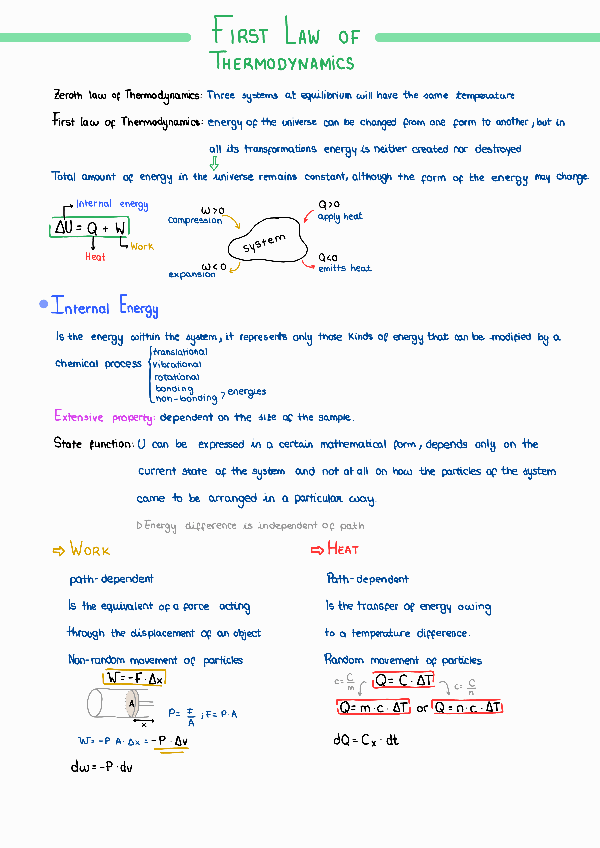 First Law of
Thermodynamics
Zeroth law of Thermodynamics: Three systems at equilibrium will have the same temperature
First law of Thermodynamics: energy of the universe can be changed from one form to another, but in
all its transformations energy is neither created nor destroyed
⇩
Total amount of energy in the universe remains constant, although the form of the energy may change.
Internal energy
ΔU = Q + W
Heat
Work
W>0
compression
Q>0
apply heat
system
W<0
expansion
Q<0
emitts heat
• Internal Energy
Is the energy within the system, it represents only those kinds of energy that can be modified by a
chemical process { translational
vibrational
rotational
bonding
non-bonding } energies
Extensive property: dependent on the size of the sample.
State function: U can be expressed in a certain mathematical form, depends only on the
current state of the system and not at all on how the particles of the system
came to be arranged in a particular way.
▷ Energy difference is independent of path
⇨ Work
path-dependent
Is the equivalent of a force acting
through the displacement of an object
Non-random movement of particles
W=-F·Δx
A
x
P= F/A ; F= P·A
W= -P·A·Δx = -P·Δv
dw=-P·dv
⇨ Heat
Path-dependent
Is the transfer of energy owing
to a temperature difference.
Random movement of particles
c= C/m Q= C·ΔT c= C/n
Q= m·c·ΔT or Q= n·c·ΔT
dQ = Cx · dt